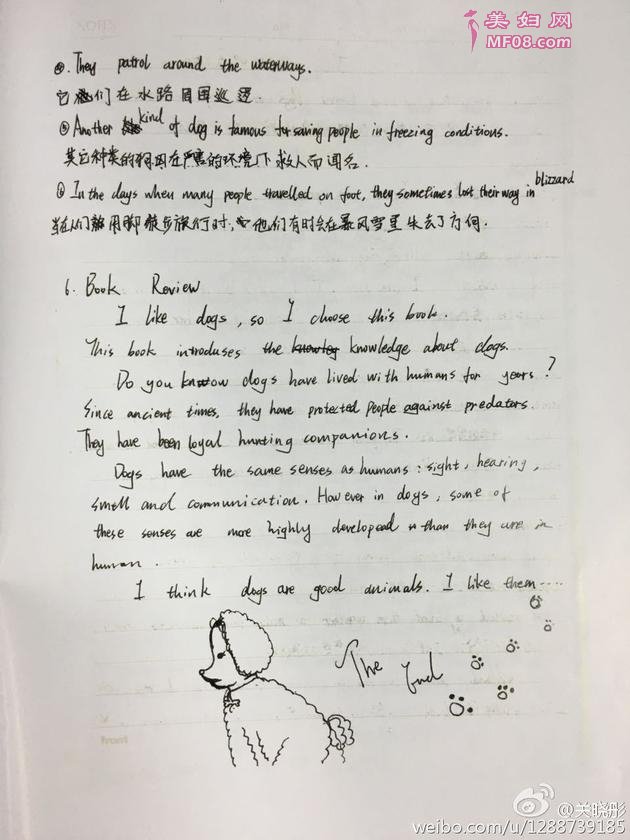 美妇网
MF08.com
④. They patrol around the waterways.
它们在水路周围巡逻.
⑤ Another kind of dog is famous for saving people in freezing conditions.
其它种类的狗因在严寒的环境下救人而闻名.
⑥ In the days when many people travelled on foot, they sometimes lost their way in blizzard
当在人们用脚徒步旅行时,他们有时会在暴风雪里失去了方向.
6. Book Review
I like dogs, so I choose this book.
This book introduses the knowledge about dogs.
Do you know dogs have lived with humans for years?
Since ancient times, they have protected people against predators.
They have been loyal hunting companions.
Dogs have the same senses as humans: sight, hearing,
smell and communication. However in dogs, some of
these senses are more highly developed than they are in
human.
I think dogs are good animals. I like them......
The End
front
@关晓彤
weibo.com/u/1288739185